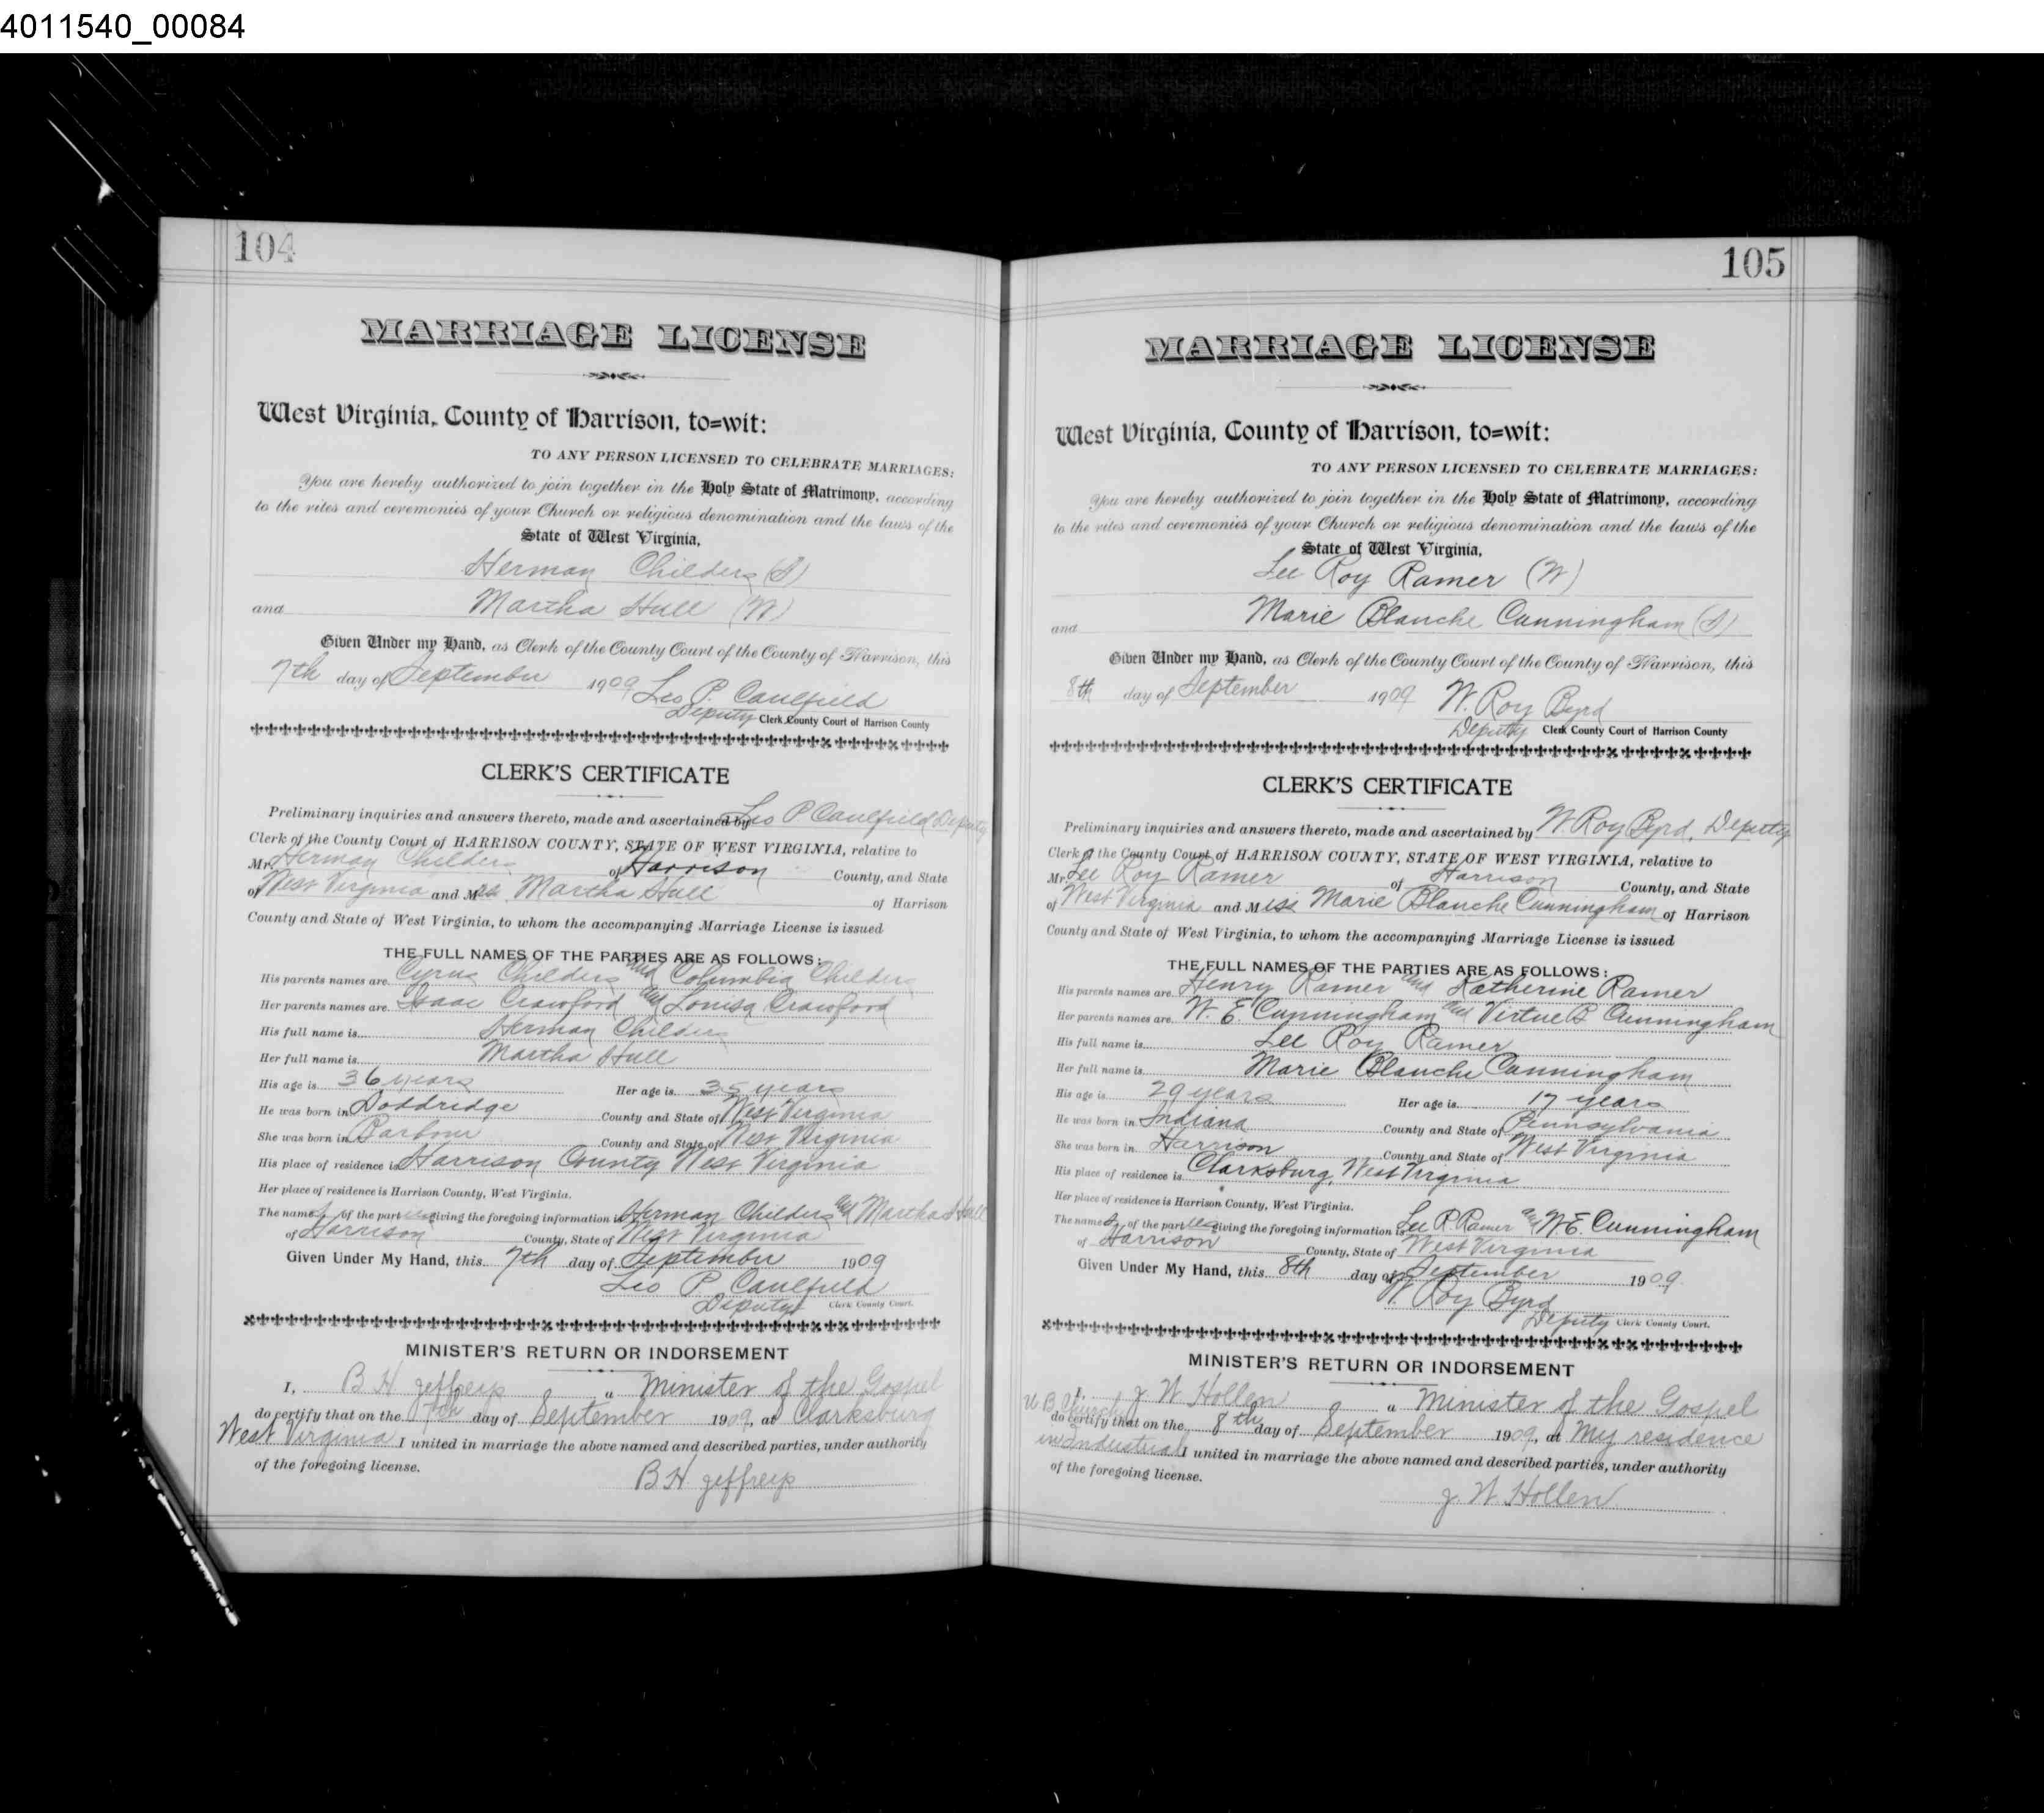 4011540_00084
104
MARRIAGE LICENSE
West Virginia, County of Harrison, to=wit:
TO ANY PERSON LICENSED TO CELEBRATE MARRIAGES:
You are hereby authorized to join together in the Holy State of Matrimony, according
to the rites and ceremonies of your Church or religious denomination and the laws of the
State of West Virginia,
Herman Childers (S)
and Martha Hull (W)
Given Under my Hand, as Clerk of the County Court of the County of Harrison, this
7th day of September 1909 Leo P. Caulfield
Deputy Clerk County Court of Harrison County
CLERK'S CERTIFICATE
Preliminary inquiries and answers thereto, made and ascertained by Leo P. Caulfield Deputy
Clerk of the County Court of HARRISON COUNTY, STATE OF WEST VIRGINIA, relative to
Mr. Herman Childers of Harrison County, and State
of West Virginia and Mrs. Martha Hull of Harrison
County and State of West Virginia, to whom the accompanying Marriage License is issued
THE FULL NAMES OF THE PARTIES ARE AS FOLLOWS:
His parents names are Cyrus Childers and Columbia Childers
Her parents names are Isaac Crawford and Louisa Crawford
His full name is Herman Childers
Her full name is Martha Hull
His age is 36 years Her age is 35 years
He was born in Doddridge County and State of West Virginia
She was born in Barbour County and State of West Virginia
His place of residence is Harrison County West Virginia
Her place of residence is Harrison County, West Virginia.
The names of the parties giving the foregoing information is Herman Childers and Martha Hull
of Harrison County, State of West Virginia
Given Under My Hand, this 7th day of September 1909
Leo P. Caulfield
Deputy Clerk County Court.
MINISTER'S RETURN OR INDORSEMENT
I, B H Jeffreys a Minister of the Gospel
do certify that on the 7th day of September 1909, at Clarksburg
West Virginia I united in marriage the above named and described parties, under authority
of the foregoing license.
B H Jeffreys
105
MARRIAGE LICENSE
West Virginia, County of Harrison, to=wit:
TO ANY PERSON LICENSED TO CELEBRATE MARRIAGES:
You are hereby authorized to join together in the Holy State of Matrimony, according
to the rites and ceremonies of your Church or religious denomination and the laws of the
State of West Virginia,
Lee Roy Ramer (W)
and Marie Blanche Cunningham (S)
Given Under my Hand, as Clerk of the County Court of the County of Harrison, this
8th day of September 1909 W. Roy Byrd
Deputy Clerk County Court of Harrison County
CLERK'S CERTIFICATE
Preliminary inquiries and answers thereto, made and ascertained by W. Roy Byrd, Deputy
Clerk of the County Court of HARRISON COUNTY, STATE OF WEST VIRGINIA, relative to
Mr. Lee Roy Ramer of Harrison County, and State
of West Virginia and Miss Marie Blanche Cunningham of Harrison
County and State of West Virginia, to whom the accompanying Marriage License is issued
THE FULL NAMES OF THE PARTIES ARE AS FOLLOWS:
His parents names are Henry Ramer and Katherine Ramer
Her parents names are W. E. Cunningham and Virtue B Cunningham
His full name is Lee Roy Ramer
Her full name is Marie Blanche Cunningham
His age is 29 years Her age is 17 years
He was born in Indiana County and State of Pennsylvania
She was born in Harrison County and State of West Virginia
His place of residence is Clarksburg, West Virginia
Her place of residence is Harrison County, West Virginia.
The names of the parties giving the foregoing information is Lee R. Ramer and W. E. Cunningham
of Harrison County, State of West Virginia
Given Under My Hand, this 8th day of September 1909
W. Roy Byrd
Deputy Clerk County Court.
MINISTER'S RETURN OR INDORSEMENT
I, J. W. Hollen a Minister of the Gospel
U B Church do certify that on the 8th day of September 1909, at My residence
in Industrial I united in marriage the above named and described parties, under authority
of the foregoing license.
J. W. Hollen